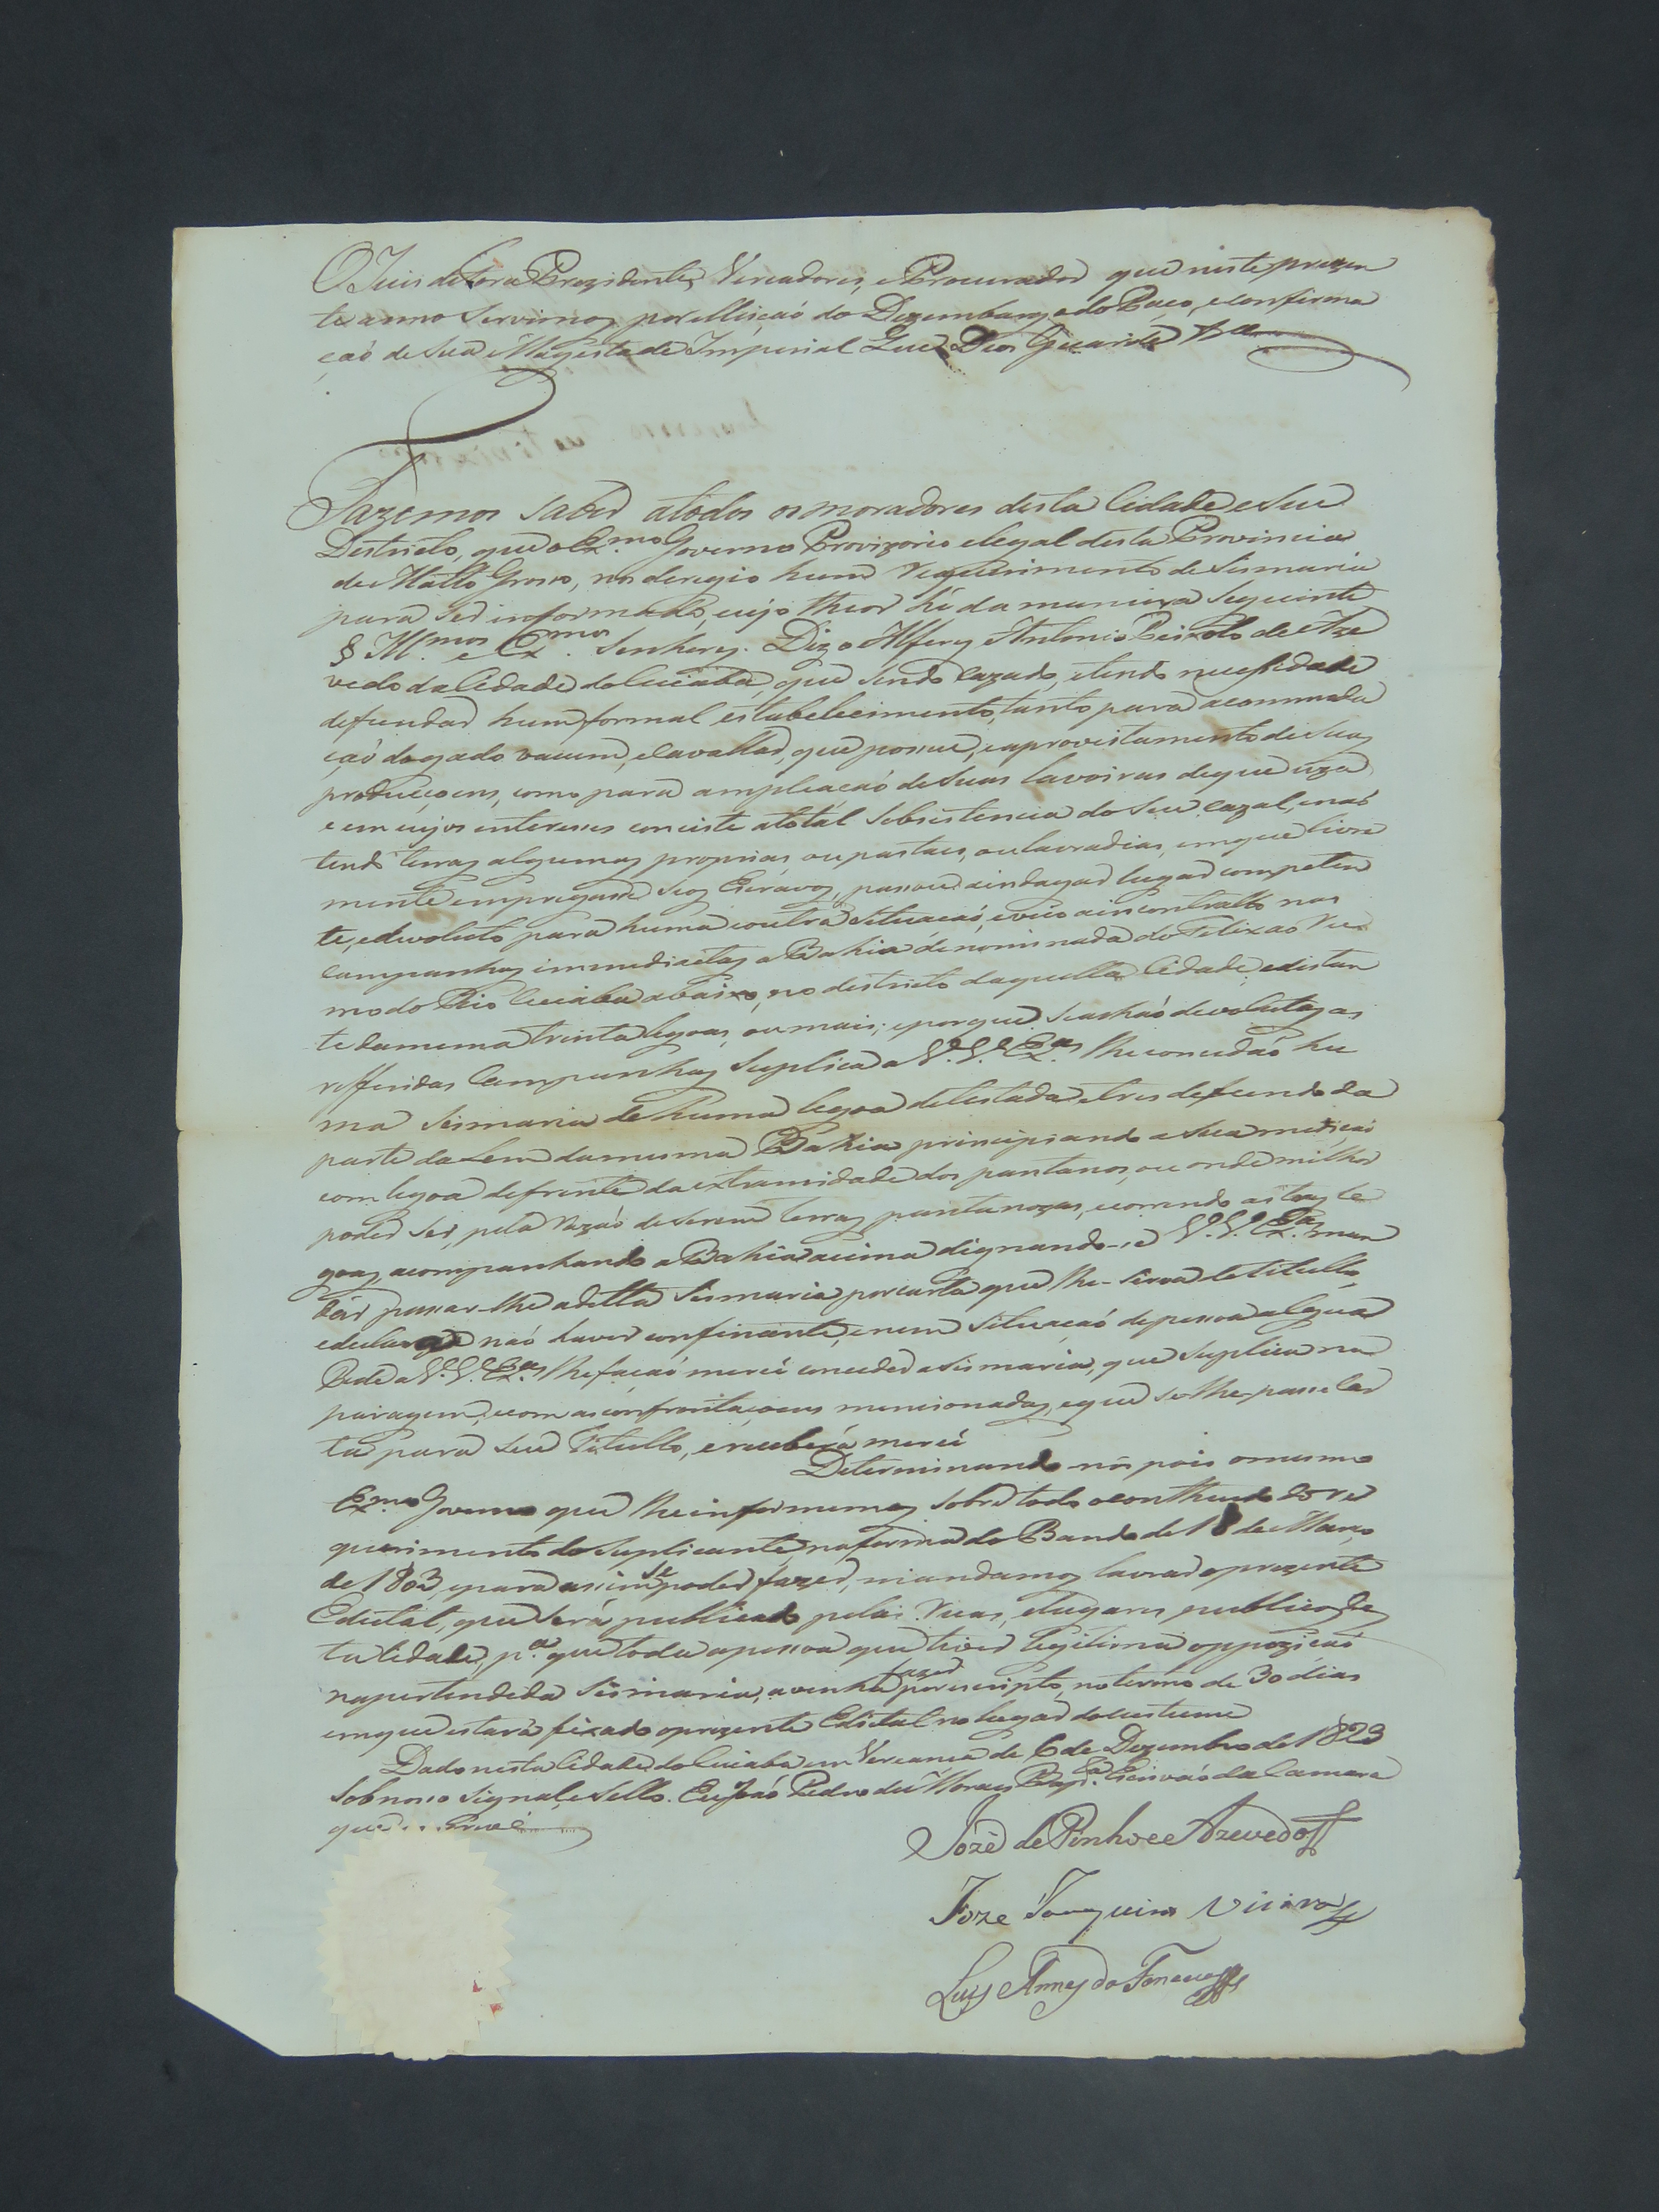 O Juis de Fora Prezidente, Vereadores, e Procurador que neste prezen
te anno servimos por elleiçaó do Dezembargo do Paço, e confirma
çaó de Sua Magestade Imperial Que Deos Guarde &a
Fazemos saber atodos os moradores desta Cidade e Seu
Destricto, que o Ex.mo Governo Provizorio e legal desta Provincia
de Matto Grosso, nos deregio hum requerimento de Sismaria
para ser informado, cujo theor hé da maneira seguinte
§ Ill.mos e Ex.mos Senhores. Diz o Alferes Antonio Peixoto de Aze
vedo da Cidade do Cuiaba, que sendo cazado, e tendo necessidade
de fundar hum formal estabelecimento, tanto para acommoda
çaó do gado vacum, e cavallar, que possue, e aproveitamento de suas
producçoens, como para ampleaçaó de suas lavoiras de que uza
e em cujos enteresses conciste a total sobsistencia do seu cazal, e naó
tendo terras algumas proprias, ou pastaes, ou lavradias, em que livre
mente empregasse seos Escravos, passou a indagar lugar competen
te, e devoluto para huma e outra situaçaó, e veio a incontrallo nas
campanhas immediatas a Bahia denominada do Felix ao Ru
mo do Rio Cuiaba abaixo, no destricto daquella Cidade, e distan
te da mesma trinta legoas, ou mais; e porque se achaó devolutas as
refferidas Campanhas Suplica a V.V. Ex.as lhe concedaó hu
ma Sismaria de huma legoa de testada e tres de fundo da
parte dalem da mesma Bahia principiando a sua mediçaó
com legoa de frente da extremidade dos pantanos, ou onde milhor
poder ser, pela razaó de serem terras pantanozas, e correndo as tres le
goas, acompanhando a Bahia acima dignando-se V.V. Ex.as man
dar passar-lhe a dita Sismaria por carta que lhe-sirva de titullo,
e declara naó haver confinante, e nem situaçaó de pessoa algua
Pede a V.V. Ex.as lhe façaó mercê conceder a Sismaria, que suplica na
paragem, e com as confrontaçoens mencionadas, e que se lhe-passe Car
ta para seu Titullo, e receberá mercê
Determinando-nos pois o mesmo
Ex.mo Governo que lhe informemos sobre todo o contheudo do re
querimento do Suplicante, na forma do Bando de 18 de Março
de 1803, e para assim se poder fazer, mandamos lavrar o prezente
Edital, que será publicado pelas ruas, e lugares publicos des
ta Cidade, p.a que toda a pessoa que tiver legitima oppoziçaó
na pertendida Sismaria, a venha fazer por escripto, no termo de 30 dias
em que estará fixado o prezente Edital no lugar do custume
Dado nesta Cidade do Cuiaba em Vereança de 6 de Dezembro de 1823
sob nosso signal, e sello. Eu Joaó Pedro de Moraes Escrivaó da Camara
que Escrevi
Jozé de Pinho e Azevedo
Joze Joaquim
Luis